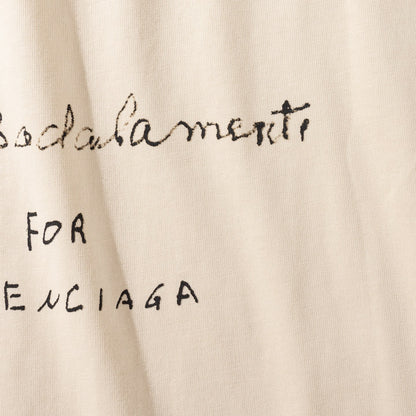 Badalamenti
FOR
ENCIAGA